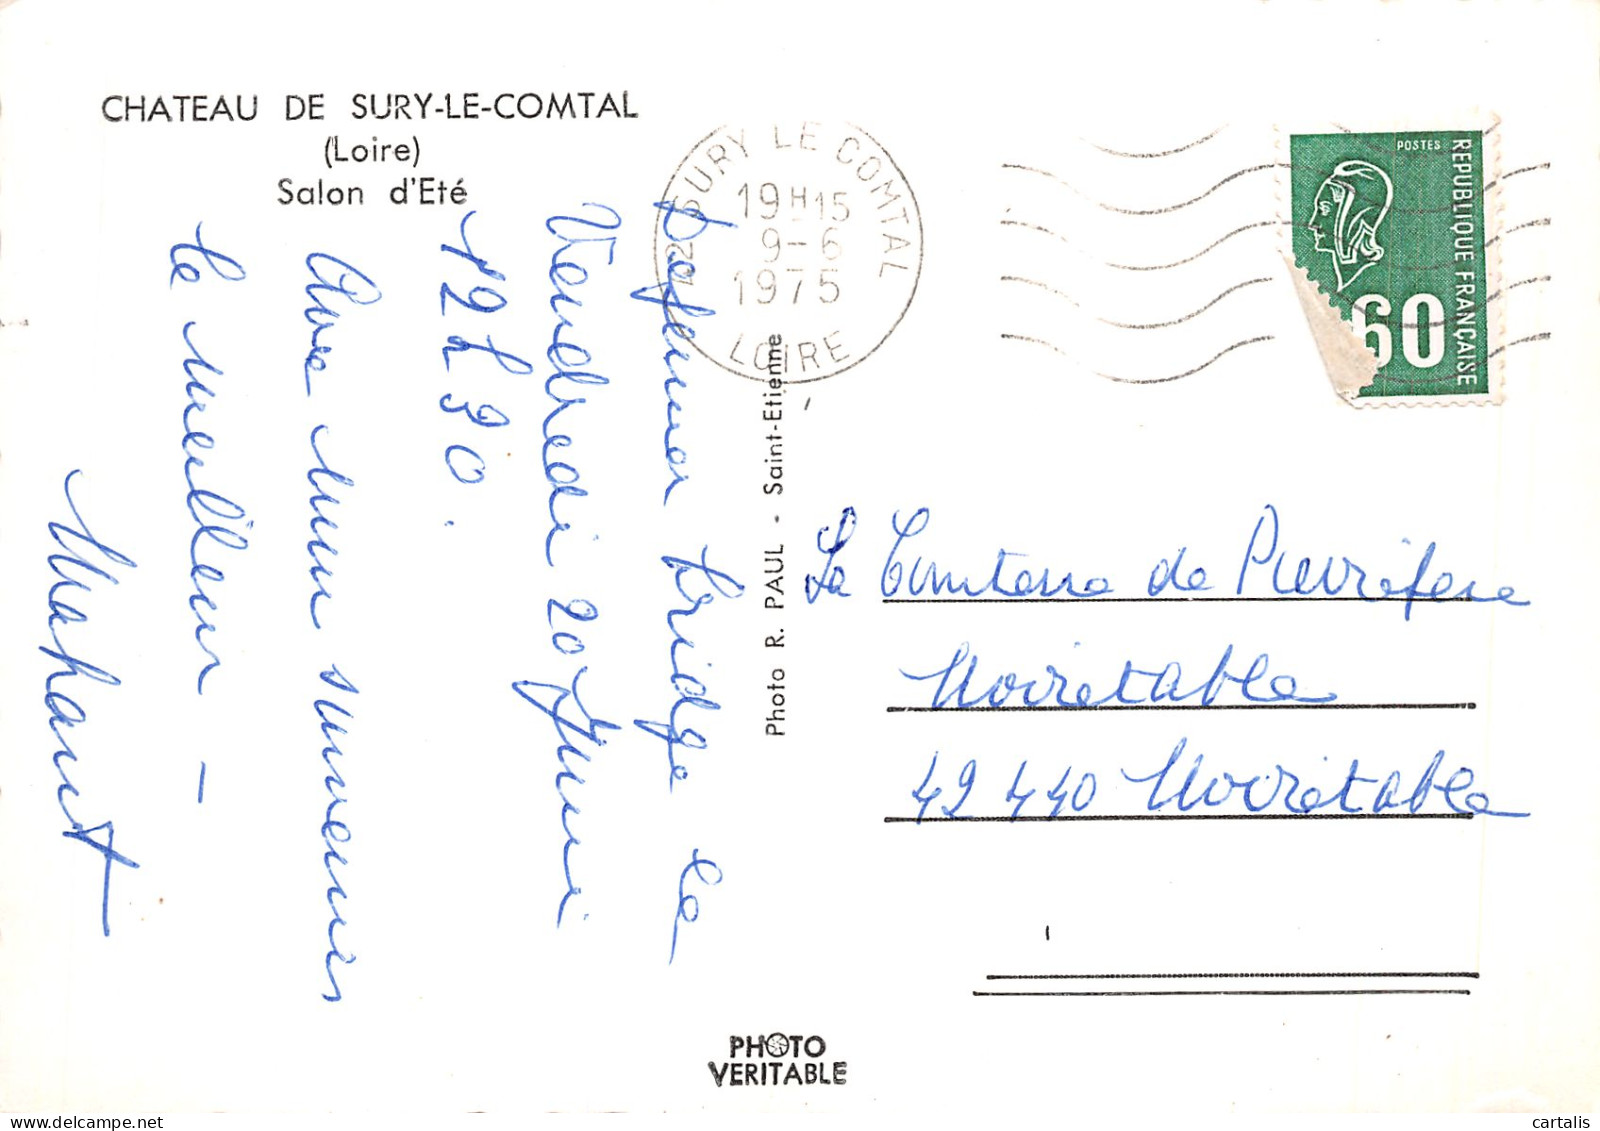 CHATEAU DE SURY-LE-COMTAL
(Loire)
Salon d'Eté
SURY LE COMTAL
19H15
9-6
1975
LOIRE
POSTES
REPUBLIQUE FRANÇAISE
60
Dejeuner bridge le
Vendredi 20 Juin
12 h 30.
Avec mon souvenir
le meilleur –
Photo R. PAUL - Saint-Etienne
La Comtesse de
Noiretable
42 440 Noiretable
PHOTO
VERITABLE
cartalis